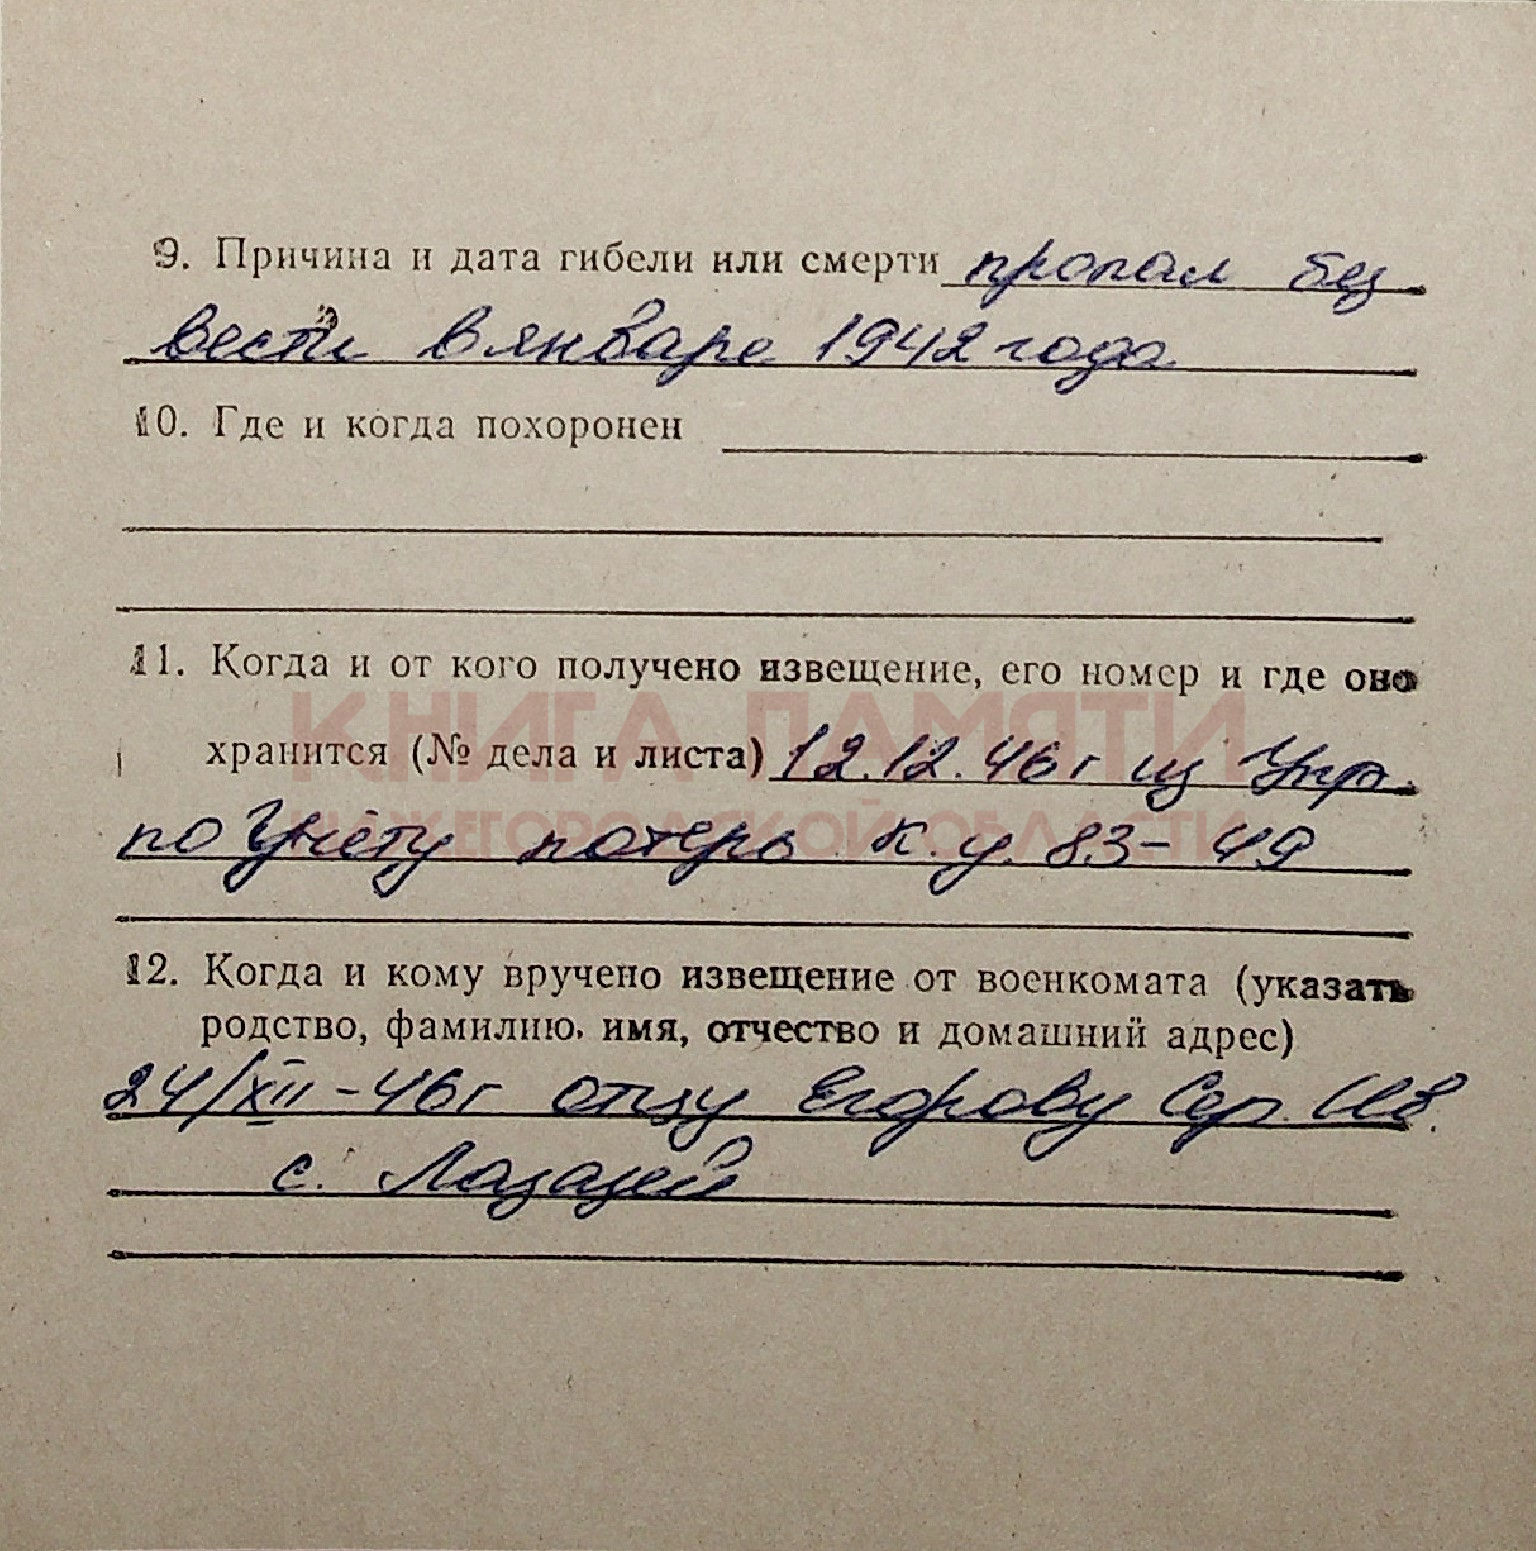 9. Причина и дата гибели или смерти пропал без
вести в январе 1942 года
10. Где и когда похоронен
11. Когда и от кого получено извещение, его номер и где оно
КНИГА ПАМЯТИ
хранится (№ дела и листа) 12.12.46 г из Упр.
НИЖЕГОРОДСКОЙ ОБЛАСТИ
по Учёту потерь к.у. 83-49
12. Когда и кому вручено извещение от военкомата (указать
родство, фамилию, имя, отчество и домашний адрес)
24/XII-46 г отцу Егорову Сер. Ив.
с. Лазазей